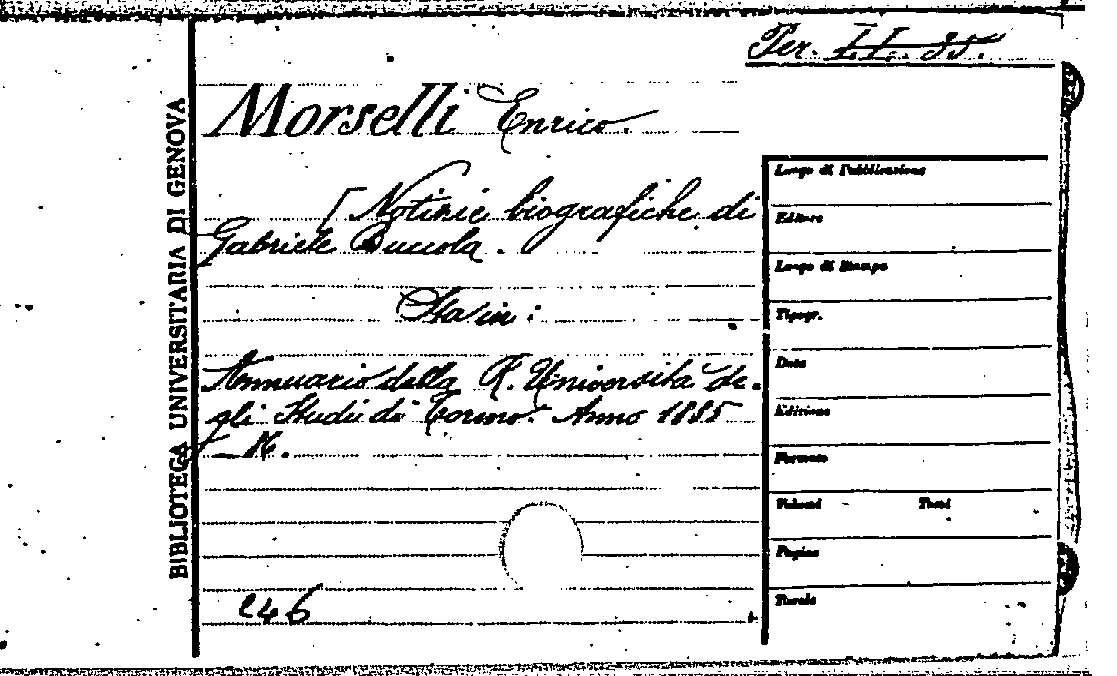 Per. II. 35.
Morselli Enrico.
[Notizie biografiche di
Gabriele Buccola.
Sta in:
Annuario della R. Università de-
gli Studi di Torino. Anno 1885
_86.
C46
BIBLIOTECA UNIVERSITARIA DI GENOVA
Luogo di Pubblicazione
Editore
Luogo di Stampa
Tipogr.
Data
Edizione
Formato
Volumi Tomi
Pagine
Tavole